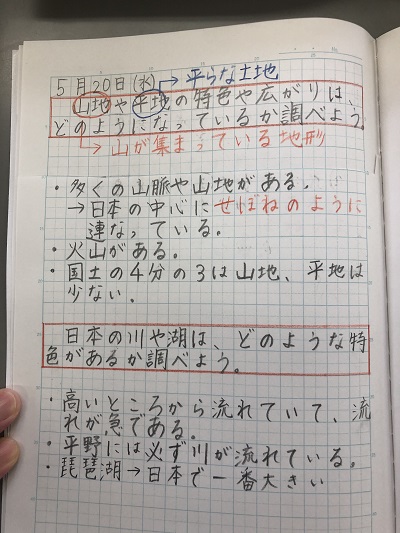 5月20日(水) →平らな土地
山地や平地の特色や広がりは、
どのようになっているか調べよう。
→山が集まっている地形
・多くの山脈や山地がある。
→日本の中心にせぼねのように
連なっている。
・火山がある。
・国土の4分の3は山地、平地は
少ない。
日本の川や湖は、どのような特
色があるか調べよう。
・高いところから流れていて、流
れが急である。
・平野には必ず川が流れている。
・琵琶湖→日本で一番大きい